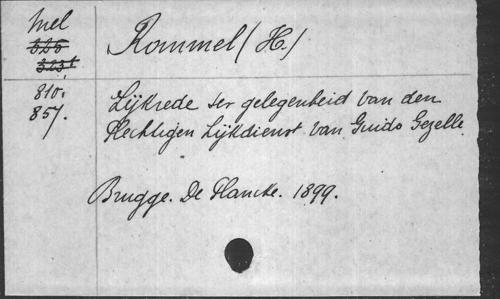 Mel
Rommel (H.)
226
323t
810.
857.
Lijkrede ter gelegenheid van den
Plechtigen Lijkdienst van Guido Gezelle.
Brugge. De Plancke. 1899.